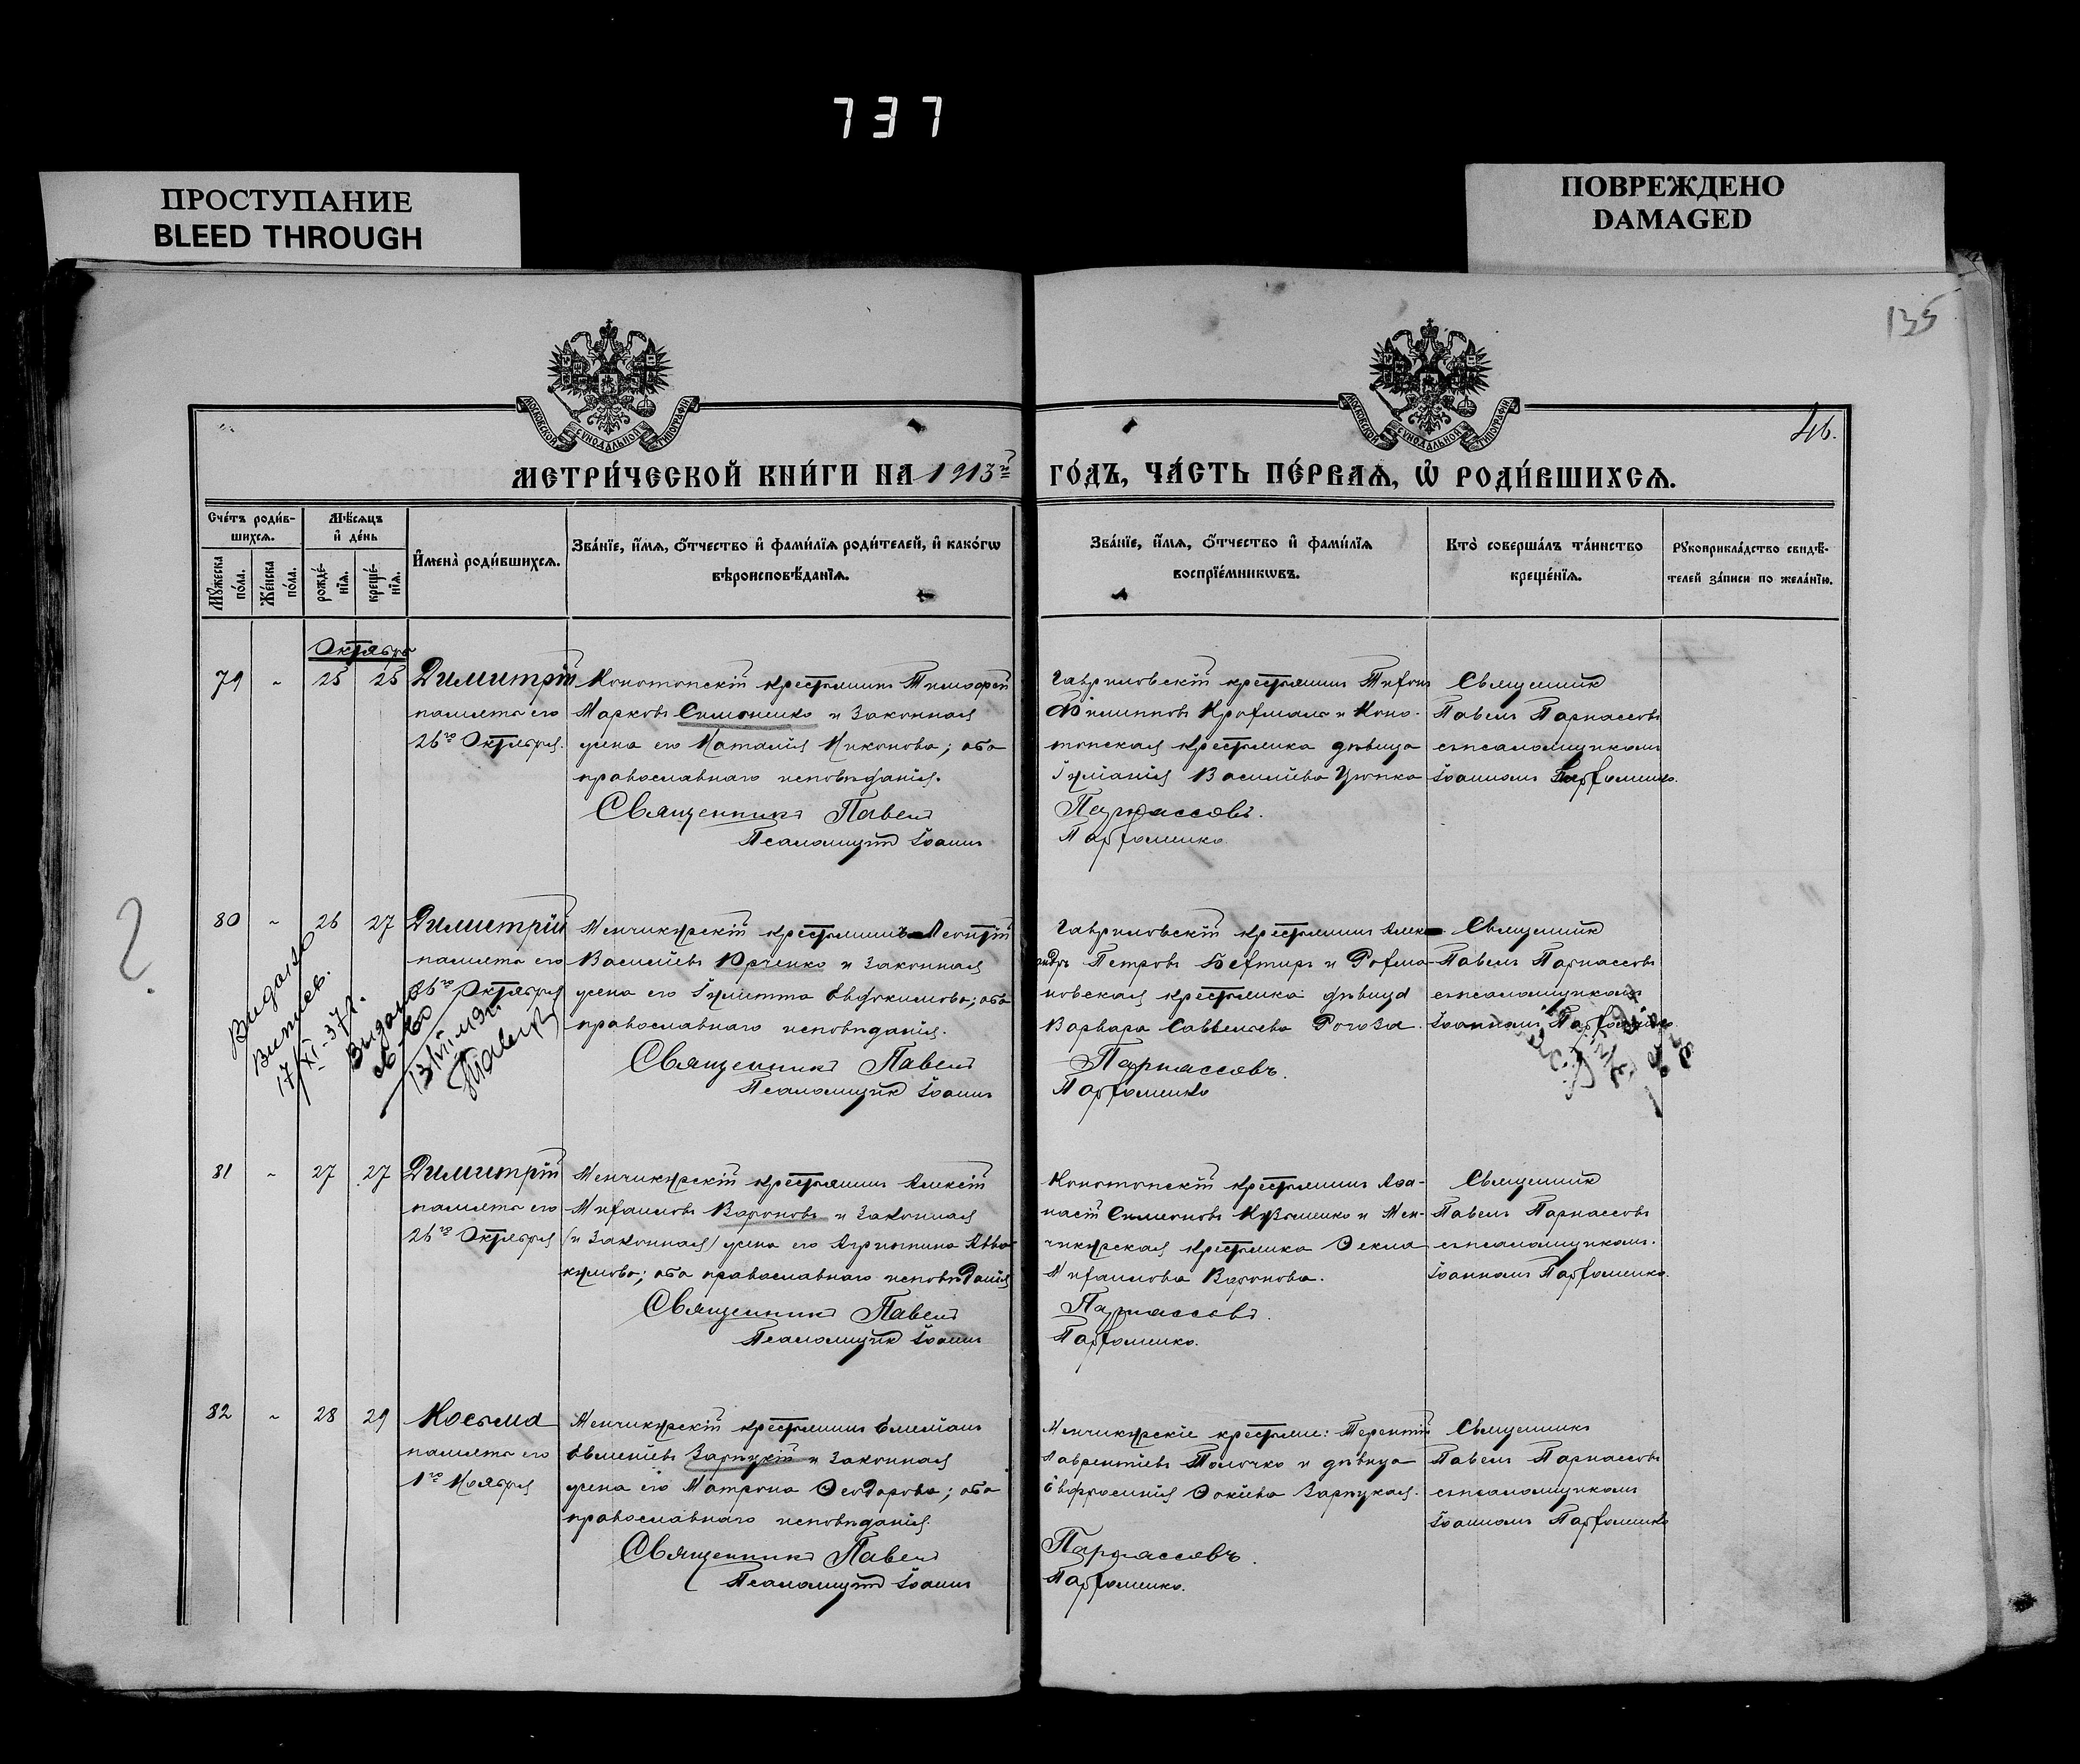 737
ПРОСТУПАНИЕ
BLEED THROUGH
ПОВРЕЖДЕНО
DAMAGED
135
46.
МОСКОВСКОЙ СУНОДАЛЬНОЙ ТИПОГРАФІИ
МОСКОВСКОЙ СУНОДАЛЬНОЙ ТИПОГРАФІИ
МЕТРИ́ЧЕСКОЙ КНИ́ГИ НА 1913й ГО́ДЪ, ЧА́СТЬ ПЕ́РВАѦ, Ѡ҆ РОДИ́ВШИХСѦ.
Сче́тъ роди́в-
шихсѧ.
Мѣ́сѧцъ
и҆ де́нь
Мꙋ́жеска по́ла.
Же́нска по́ла.
рожде́-нїѧ.
креще́-нїѧ.
И҆мена̀ роди́вшихсѧ.
Зва́нїе, и҆́мѧ, ѻ҆́тчество и҆ фами́лїѧ роди́телей, и҆ како́гѡ
вѣроисповѣ́данїѧ.
Зва́нїе, и҆́мѧ, ѻ҆́тчество и҆ фами́лїѧ
воспрїе́мникѡвъ.
Кто̀ соверша́лъ та́инство
креще́нїѧ.
Рꙋкоприкла́дство свидѣ́-
телей за́писи по жела́нїю.
Октябрь
79 " 25 25 Димитрій
память его
26го Октября.
Конотопскій крестьянинъ Тимофей
Марковъ Симоненко и законная
жена его Наталія Никонова; оба
православнаго исповѣданія.
Священникъ Павелъ
Псаломщикъ Іоаннъ
Гавриловскій крестьянинъ Тихонъ
Филипповъ Крохмаль и Коно-
топская крестьянка дѣвица
Іуліанія Васильева Цюпка
Парнассовъ.
Пархоменко
Священникъ
Павелъ Парнассовъ
съ псаломщикомъ
Іоанномъ Пархоменко.
80 " 26 27 Димитрій
память его
26го Октября
Менчикурскій крестьянинъ Леонтій
Васильевъ Юрченко и законная
жена его Іулитта Евдокимова; оба
православнаго исповѣданія.
Священникъ Павелъ
Псаломщикъ Іоаннъ
Гавриловскій крестьянинъ Алек-
андръ Петровъ Бехтиръ и Рохма-
новская крестьянка дѣвица
Варвара Савельева Рогоза.
Парнассовъ.
Пархоменко
Священникъ
Павелъ Парнассовъ
съ псаломщикомъ
Іоанномъ Пархоменко.
Видано
Випись
17/XI-37 г.
Видано
св-во
81 " 27 27 Димитрій
память его
26го Октября
Менчикурскій крестьянинъ Алексій
Михаиловъ Вороновъ и законная
(и законная) жена его Агриппина Авва-
кумова; оба православнаго исповѣданія
Священникъ Павелъ
Псаломщикъ Іоаннъ
Конотопскій крестьянинъ Афа-
насій Симеоновъ Кузьменко и Мен-
чикурская крестьянка Ѳекла
Михаилова Воронова.
Парнассовъ.
Пархоменко.
Священникъ
Павелъ Парнассовъ
съ псаломщикомъ.
Іоанномъ Пархоменко.
82 " 28 29 Косьма
память его
1го Ноября
Менчикурскій крестьянинъ Емеліанъ
Евменіевъ Зарицкій и законная
жена его Матрона Ѳеодорова; оба
православнаго исповѣданія.
Священникъ Павелъ
Псаломщикъ Іоаннъ
Менчикурскіе крестьяне: Терентій
Лаврентіевъ Толочко и дѣвица
Евфросинія Фокіева Зарицкая.
Парнассовъ.
Пархоменко.
Священникъ
Павелъ Парнассовъ
съ псаломщикомъ
Іоанномъ Пархоменко